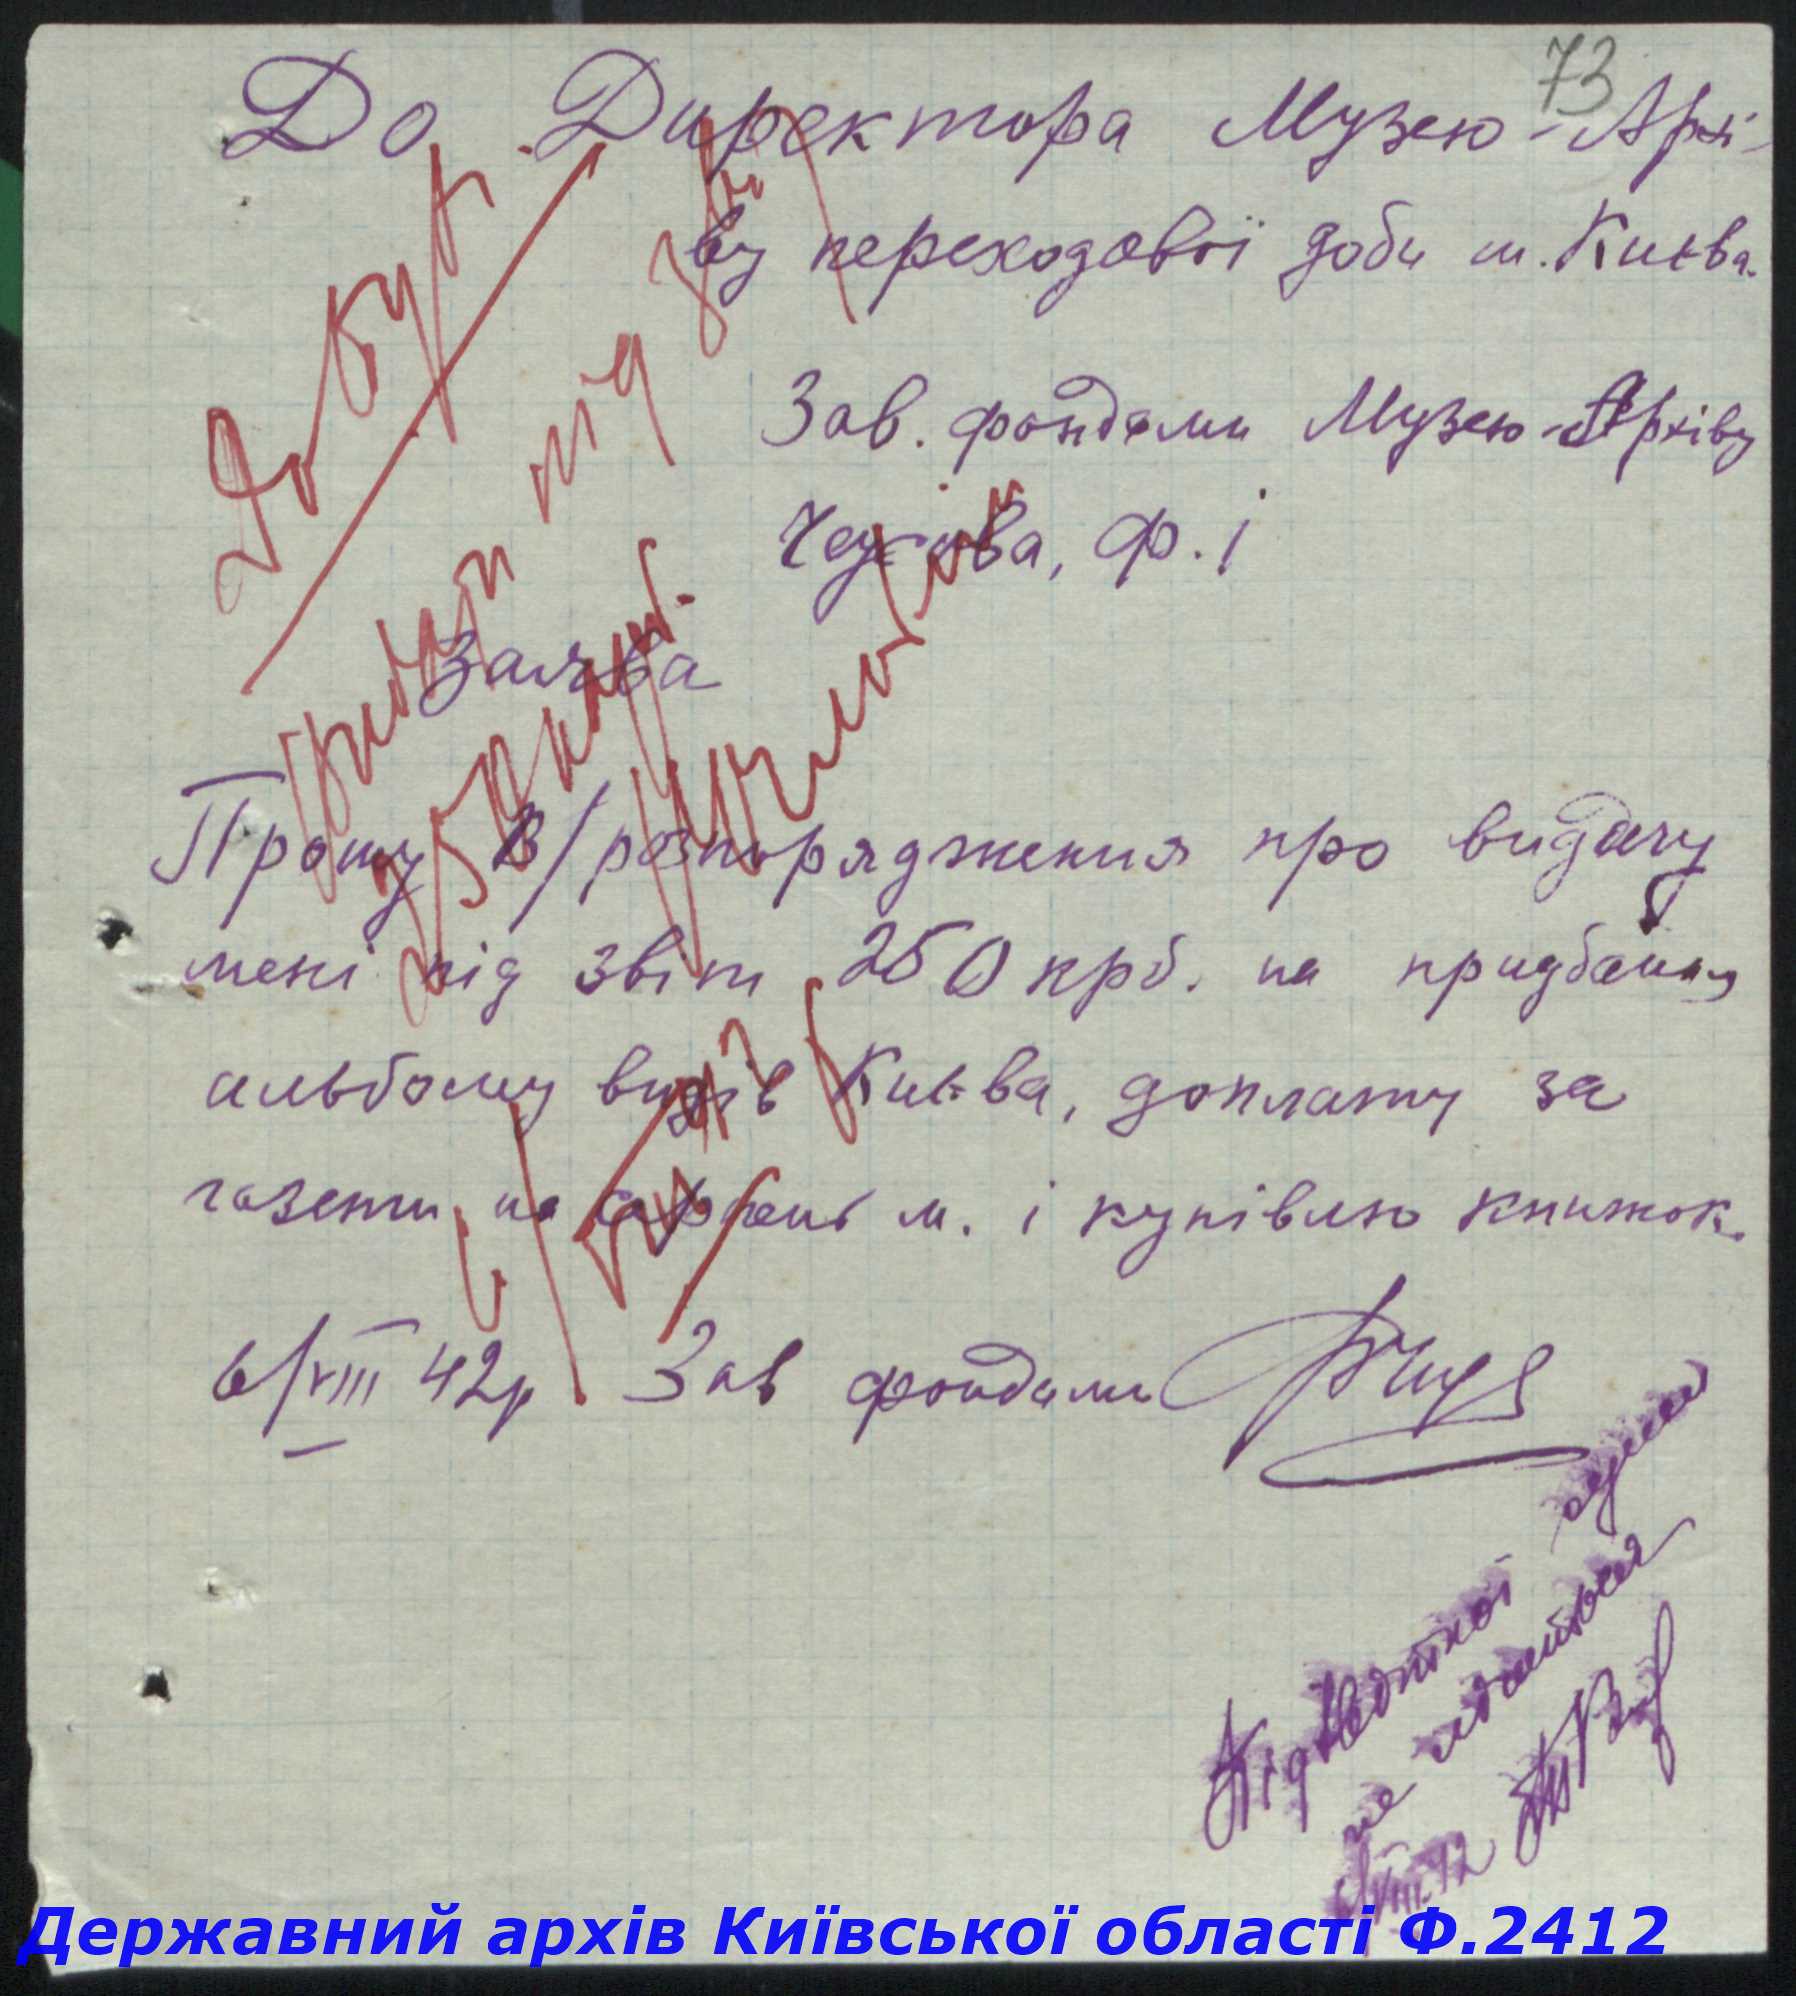 73
До Директора Музею-Архі-
ву переходової доби м. Києва.
Зав. фондами Музею-Архіву
Ф. і
Заява
Прошу В/розпорядження про видачу
мені під звіт 250 крб. на придбання
альбому видів Києва, доплату за
газети на серпень м. і купівлю книжок.
6/VIII 42р Зав фондами
Бух.
під звіт
250 крб.
Підзвітної суми
не
VIII.42
Державний архів Київської області Ф.2412